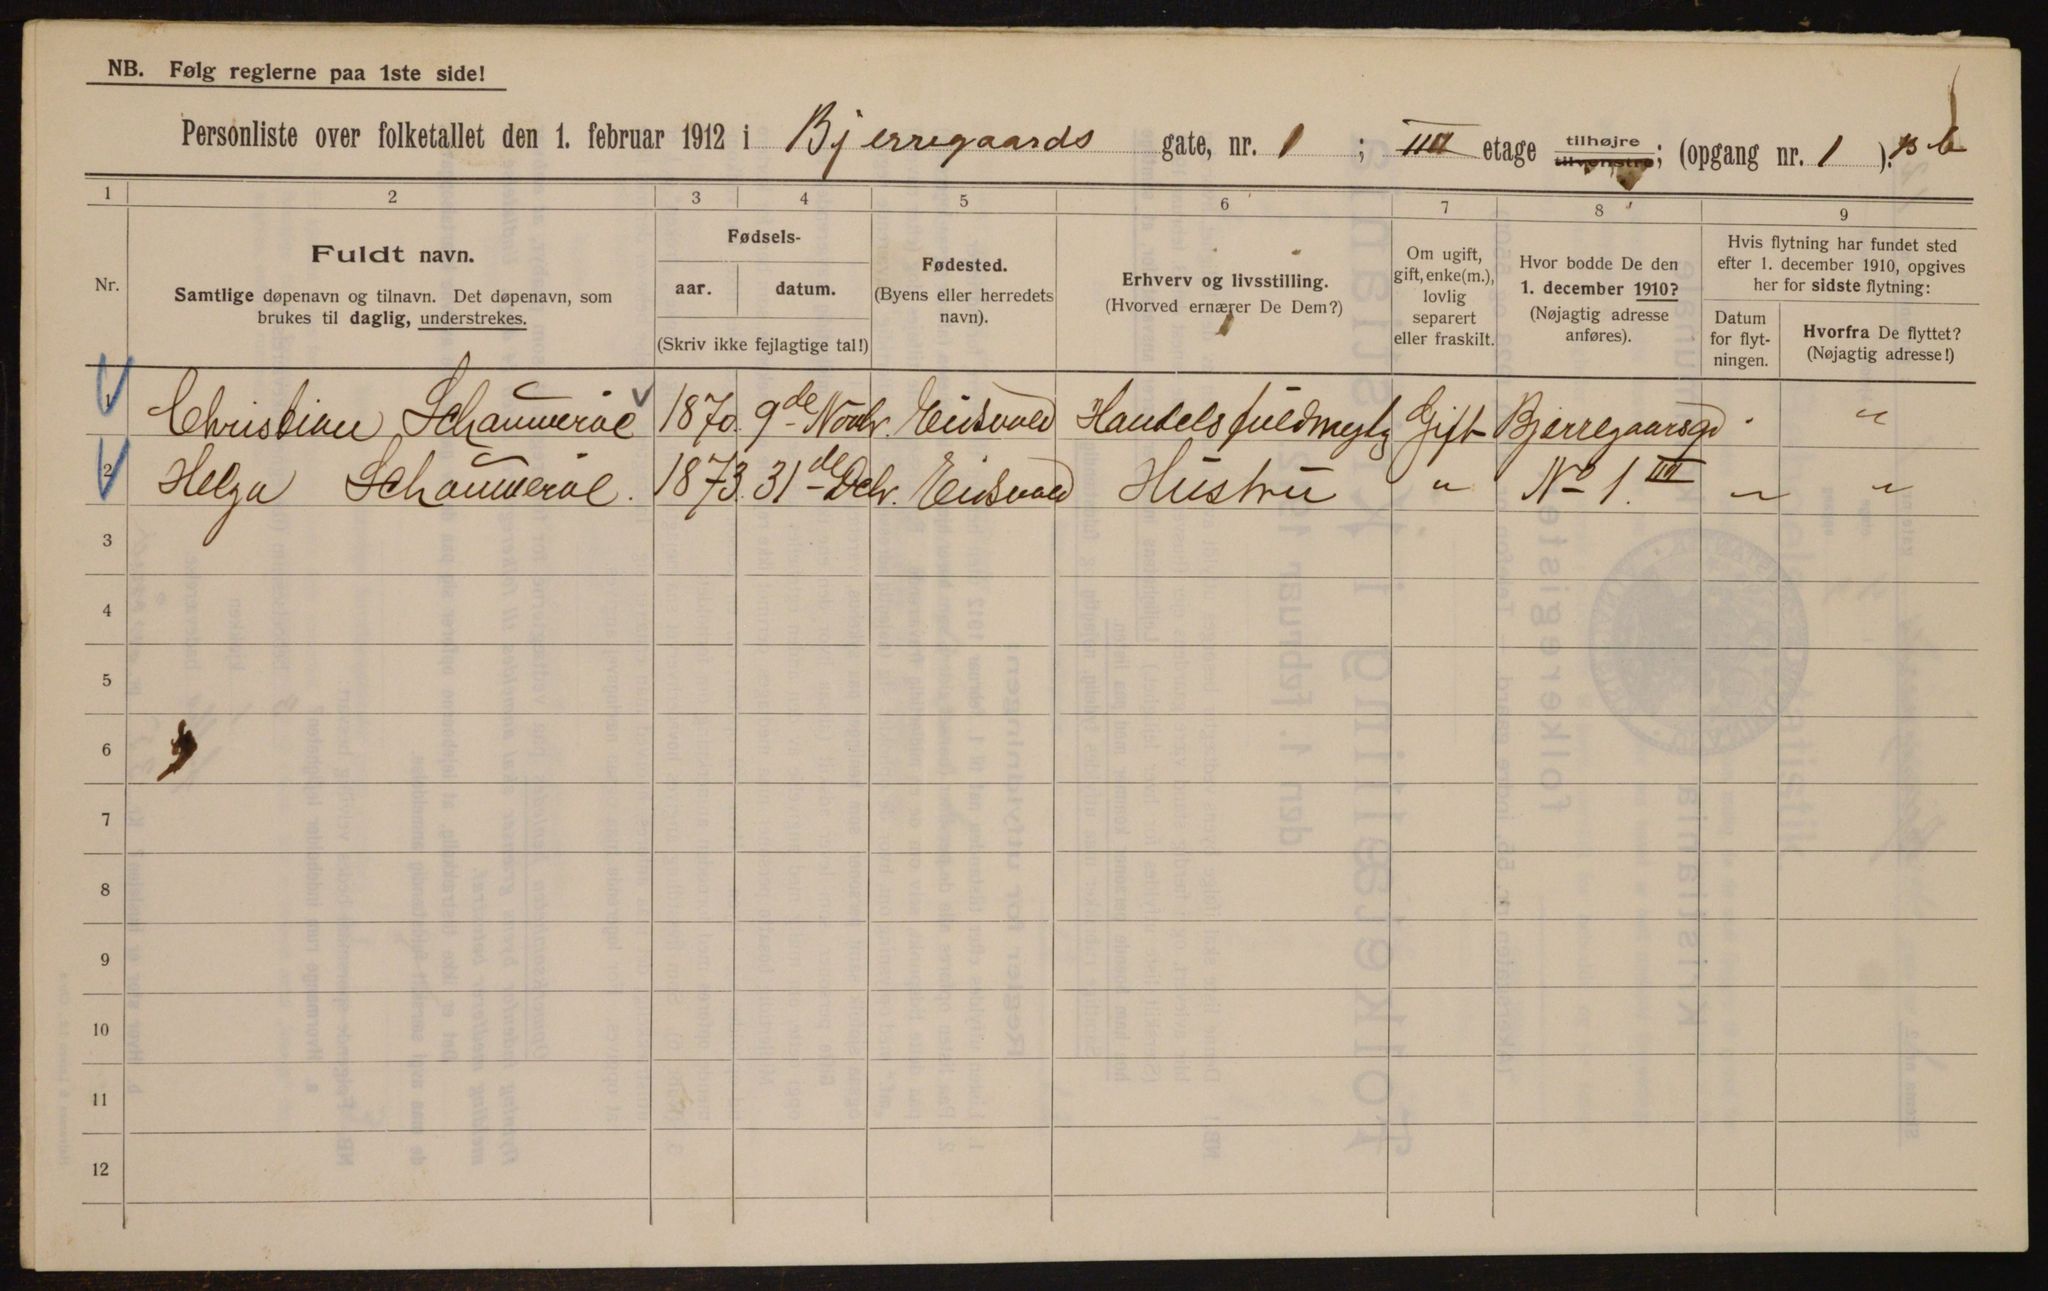 NB. Følg reglerne paa 1ste side!
Personliste over folketallet den 1. februar 1912 i Bjerregaards gate, nr. 1 ; IIII etage tilhøjre tilvenstre; (opgang nr. 1 ). b
1 2 3 4 5 6 7 8 9
Nr.
Fuldt navn.
Samtlige døpenavn og tilnavn. Det døpenavn, som
brukes til daglig, understrekes.
Fødsels-
aar. datum.
(Skriv ikke fejlagtige tal!)
Fødested.
(Byens eller herredets
navn).
Erhverv og livsstilling.
(Hvorved ernærer De Dem?)
Om ugift,
gift, enke(m.),
lovlig
separert
eller fraskilt.
Hvor bodde De den
1. december 1910?
(Nøjagtig adresse
anføres).
Hvis flytning har fundet sted
efter 1. december 1910, opgives
her for sidste flytning:
Datum
for flyt-
ningen.
Hvorfra De flyttet?
(Nøjagtig adresse!)
1 Christian 1870. 9de Novbr. Eidsvold Gift Bjerregaarsgd "
2 Helga 1873. 31de Decbr. Eidsvold Hustru " No 1. IIII " "
3
4
5
6
7
8
9
10
11
12